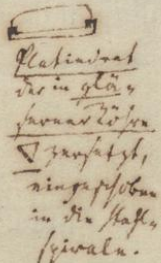 Platindrat
der in glä-
serner Röhre
zersetzt,
eingeschoben
in die Stahl-
spirale.